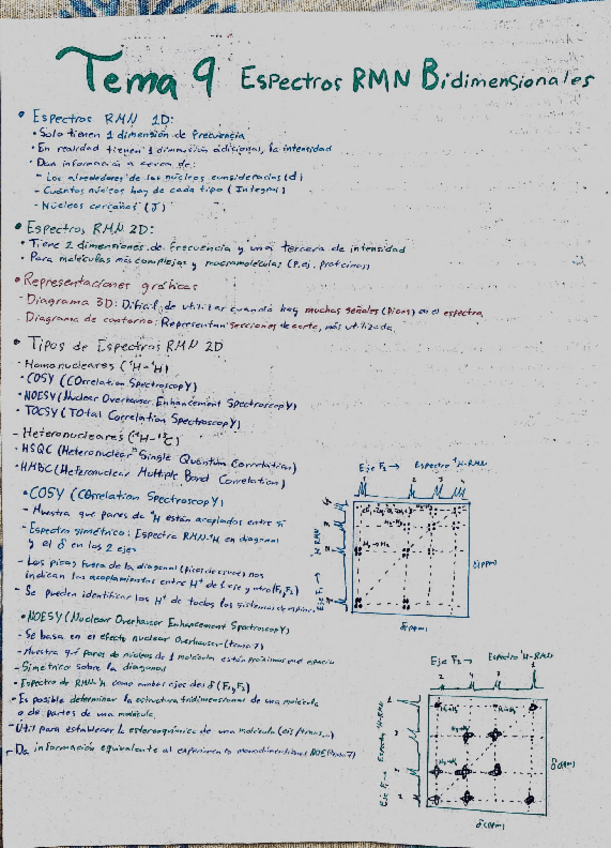 Tema 9 Espectros RMN Bidimensionales
• Espectros RMN 1D:
• Solo tienen 1 dimensión de frecuencia
• En realidad tienen 1 dimensión adicional, la intensidad
• Dan información a cerca de:
- Los alrededores de los núcleos considerados (d)
- Cuántos núcleos hay de cada tipo (Integral)
- Núcleos cercanos (J)
• Espectros RMN 2D:
• Tiene 2 dimensiones de frecuencia y una tercera de intensidad
• Para moléculas más complejas y macromoléculas (P.ej. proteínas)
• Representaciones gráficas
- Diagrama 3D: Difícil de utilizar cuando hay muchas señales (Picos) en el espectro
- Diagrama de contorno: Representan secciones de corte, más utilizada.
• Tipos de Espectros RMN 2D
- Homonucleares (¹H-¹H)
• COSY (COrrelation SpectroscopY)
• NOESY (Nuclear Overhauser Enhancement SpectroscopY)
• TOCSY (TOtal Correlation SpectroscopY)
- Heteronucleares (¹H-¹³C)
• HSQC (Heteronuclear Single Quantum Correlation)
• HMBC (Heteronuclear Multiple Bond Correlation)
Eje F₂ → Espectro ¹H-RMN
• COSY (COrrelation SpectroscopY)
- Muestra que pares de ¹H están acoplados entre sí
- Espectro simétrico: Espectro RMN-¹H en diagonal
y el δ en los 2 ejes
- Los picos fuera de la diagonal (Picos de cruce) nos
indican los acoplamientos entre H⁺ de 1 eje y otro (F₁,F₂)
- Se pueden identificar los H⁺ de todos los sistemas de
δ(ppm)
δ(ppm)
• NOESY (Nuclear Overhauser Enhancement SpectroscopY)
- Se basa en el efecto nuclear Overhauser (tema 7)
- Muestra qué pares de núcleos de 1 molécula están próximos en espacio
- Simétrico sobre la diagonal
• Espectro de RMN-¹H como ambos ejes de δ (F₁ y F₂)
• Es posible determinar la estructura tridimensional de una molécula
o de partes de una molécula.
- Útil para establecer la estereoquímica de una molécula (cis/trans...)
- Da información equivalente al experimento monodimensional NOE (tema 7)
Eje F₂ → Espectro ¹H-RMN
Eje F₁ → Espectro ¹H-RMN
δ(ppm)
δ(ppm)